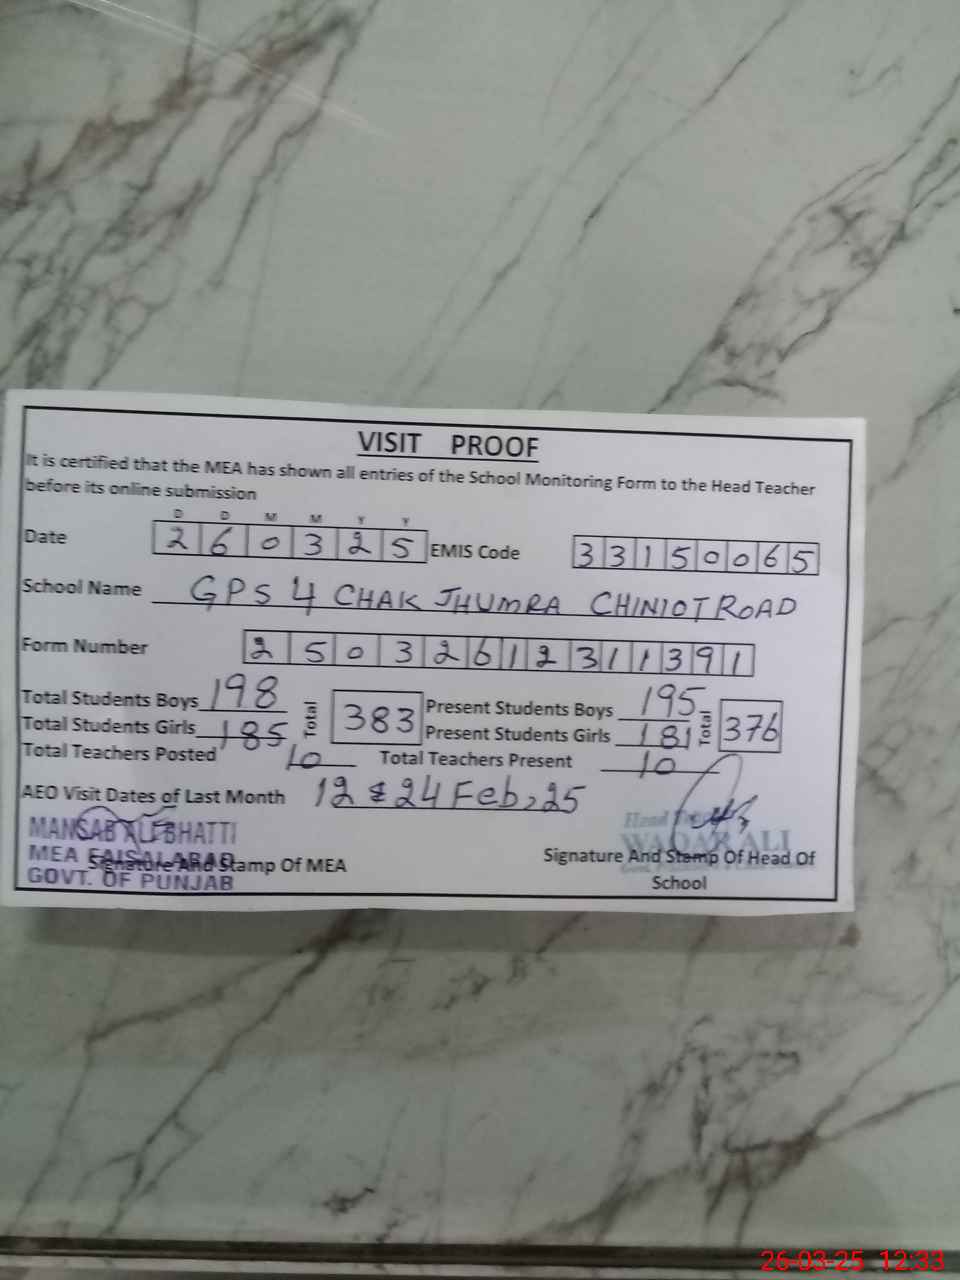 VISIT PROOF
It is certified that the MEA has shown all entries of the School Monitoring Form to the Head Teacher
before its online submission
D D M M Y Y
Date 260325 EMIS Code 33150065
School Name GPS 4 CHAK JHUMRA CHINIOT ROAD
Form Number 25032612311391
Total Students Boys 198 Total 383 Present Students Boys 195 Total 376
Total Students Girls 185 Present Students Girls 181
Total Teachers Posted 10 Total Teachers Present 10
AEO Visit Dates of Last Month 12 & 24 Feb, 25
MANSAB ALI BHATTI
MEA FAISALABAD
GOVT. OF PUNJAB
Signature And Stamp Of MEA
Head
WAQAR ALI
Signature And Stamp Of Head Of
School
26-03-25 12:33